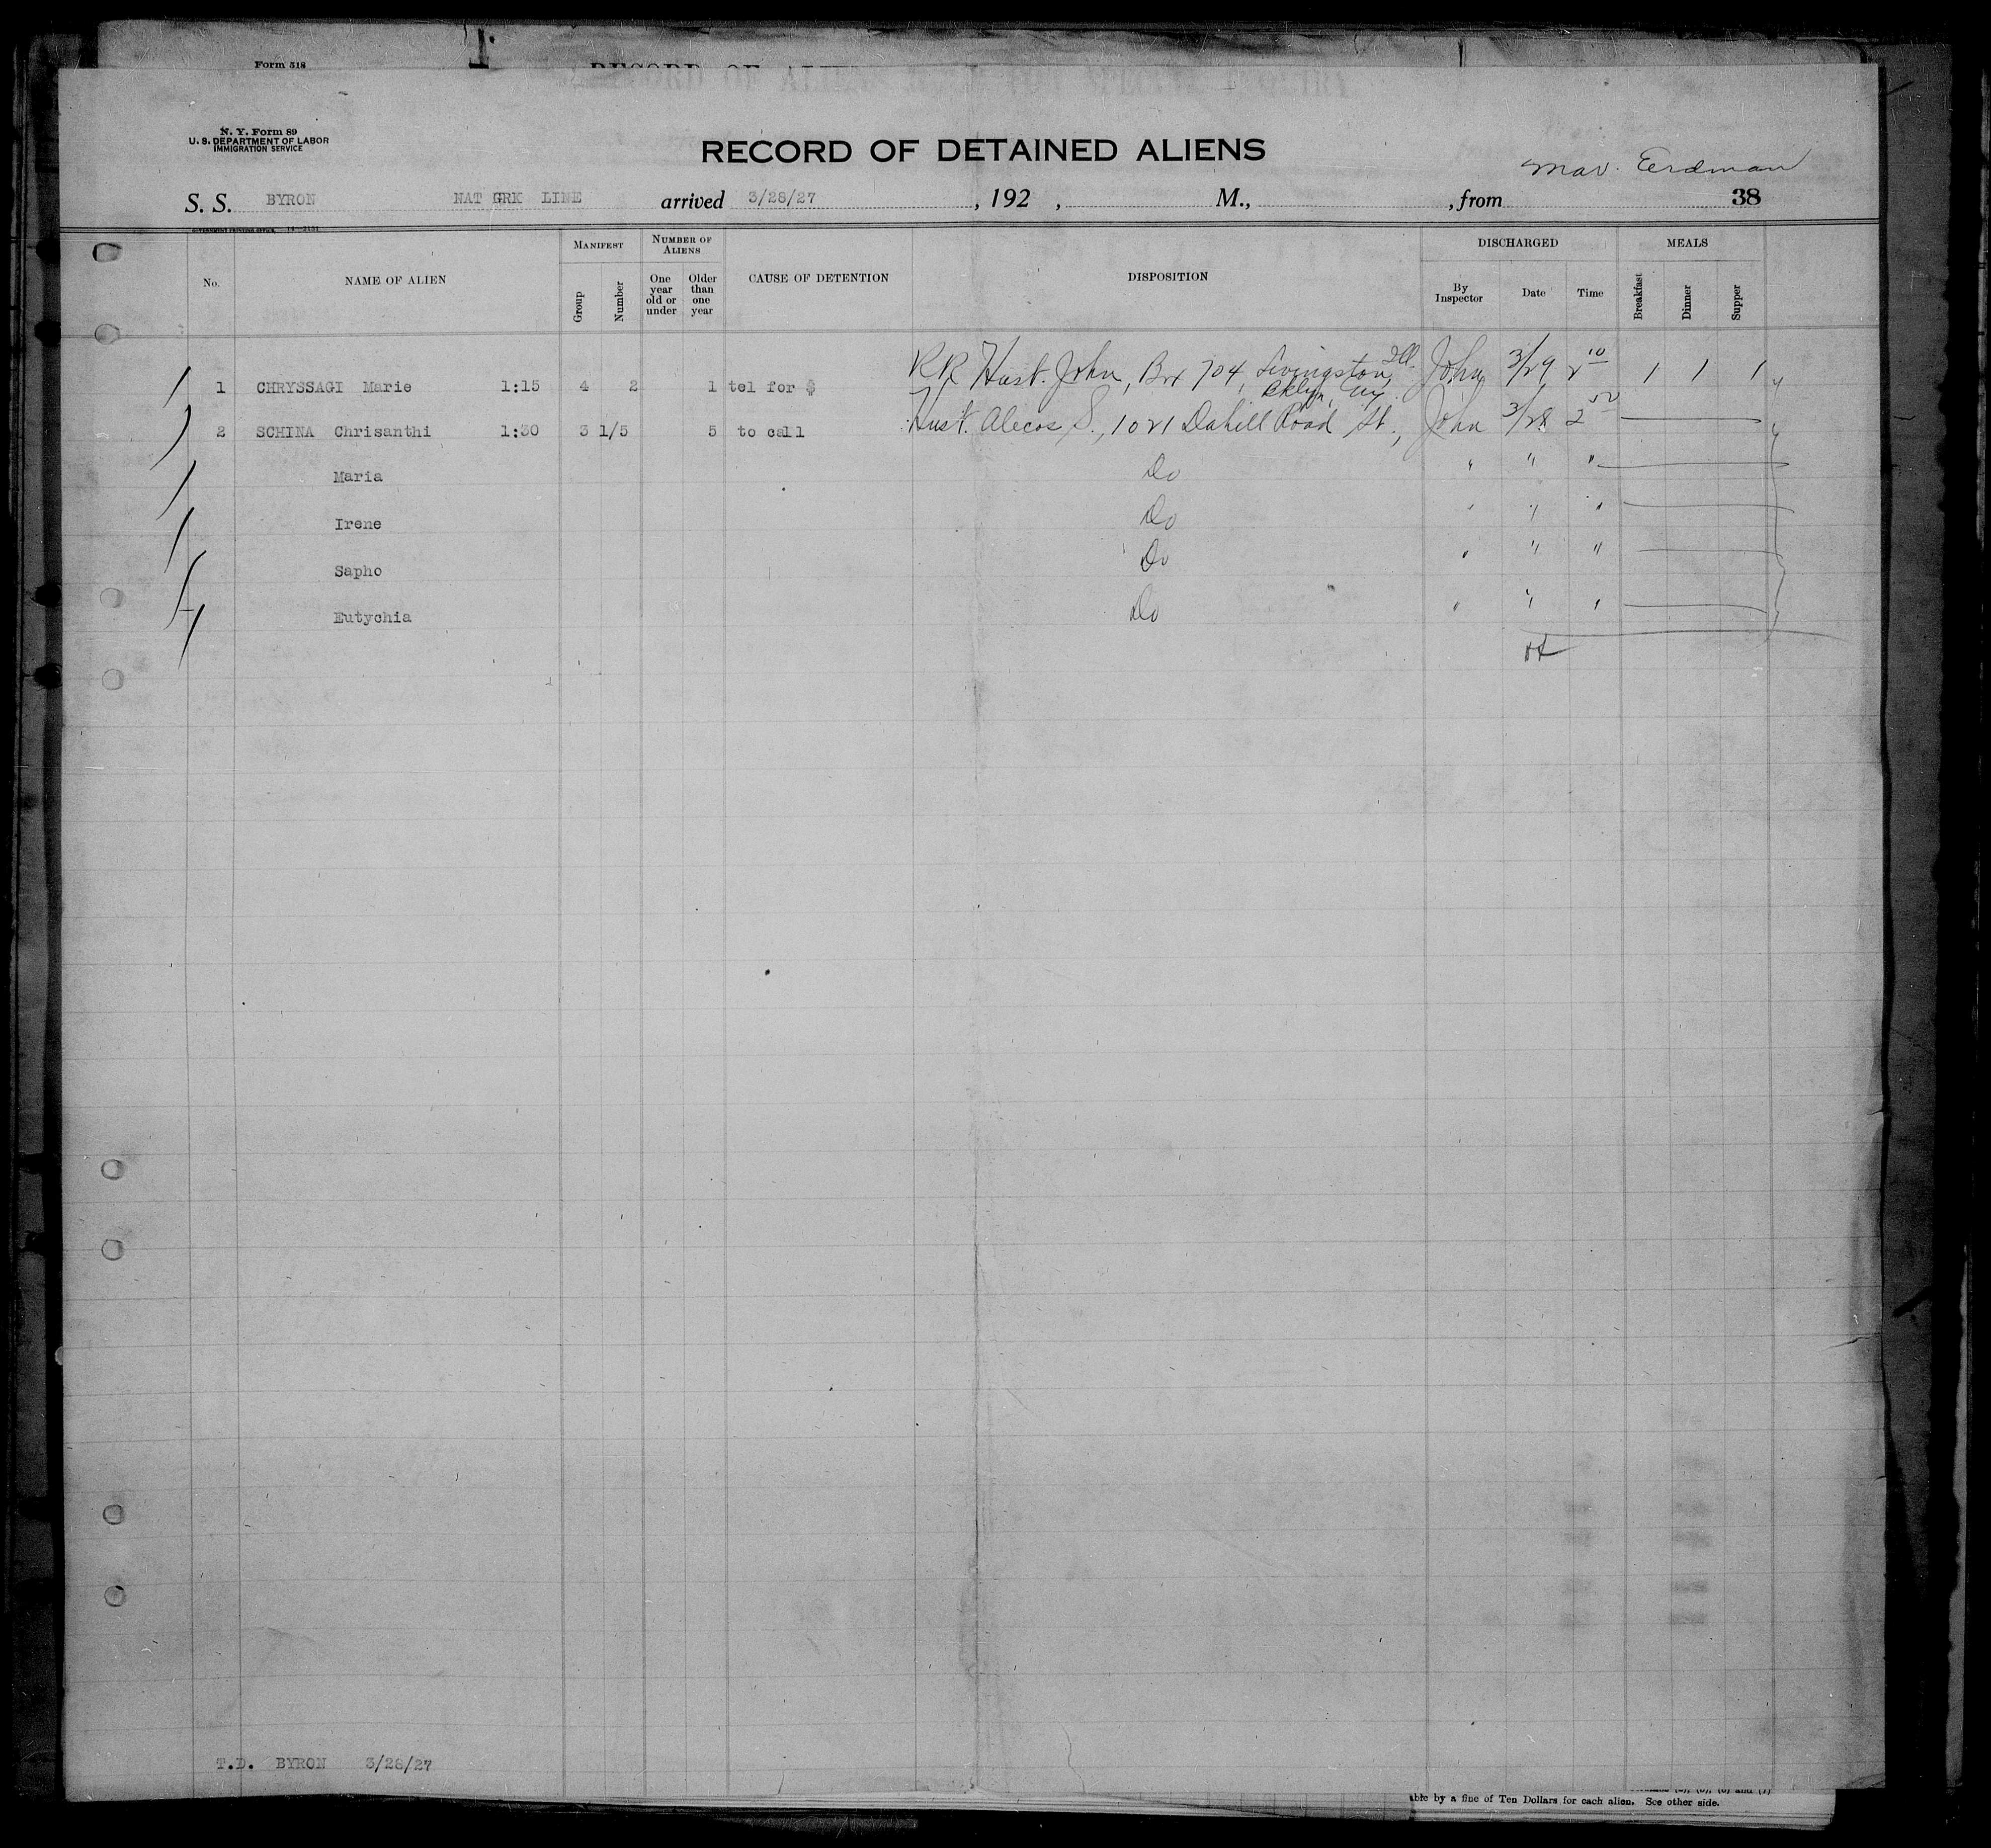 Form 518
N. Y. Form 89
U. S. DEPARTMENT OF LABOR
IMMIGRATION SERVICE
RECORD OF DETAINED ALIENS
Mav. Erdman
S. S. BYRON NAT GRK LINE arrived 3/28/27, 192 , M., , from 38
GOVERNMENT PRINTING OFFICE 14-2151
No. NAME OF ALIEN MANIFEST Group Number NUMBER OF ALIENS One year old or under Older than one year CAUSE OF DETENTION DISPOSITION DISCHARGED By Inspector Date Time MEALS Breakfast Dinner Supper
1 CHRYSSAGI Marie 1:15 4 2 1 tel for $ RR Husb. John, Bx 704, Livingston, Ill. John 3/29 2 10 1 1 1
2 SCHINA Chrisanthi 1:30 3 1/5 5 to call Husb. Alecos S., 1021 Dahill Road St., Bklyn, NY. John 3/28 2 50
Maria Do " " "
Irene Do " " "
Sapho Do " " "
Eutychia Do " " "
T.D. BYRON 3/28/27
able by a fine of Ten Dollars for each alien. See other side.